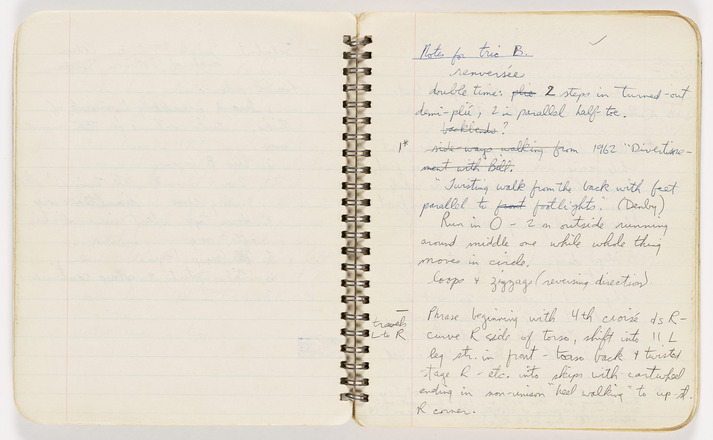 Notes for trio B.
renversée
double time: plié 2 steps in turned-out
demi-plié, 2 in parallel half-toe.
backbends?
1* side-ways walking from 1962 "Divertisse-
ment with Bill.
"Twisting walk from the back with feet
parallel to front footlights." (Denby)
Run in O - 2 on outside running
around middle one while whole thing
moves in circle.
loops & zigzags (reversing direction)
Phrase beginning with 4th croisé ds R-
travels
L to R
curve R side of torso, shift into || L
leg str. in front - torso back & twisted
-stage R - etc. into skips with cartwheel
ending in non-unison "heel walking" to up-st.
R corner.